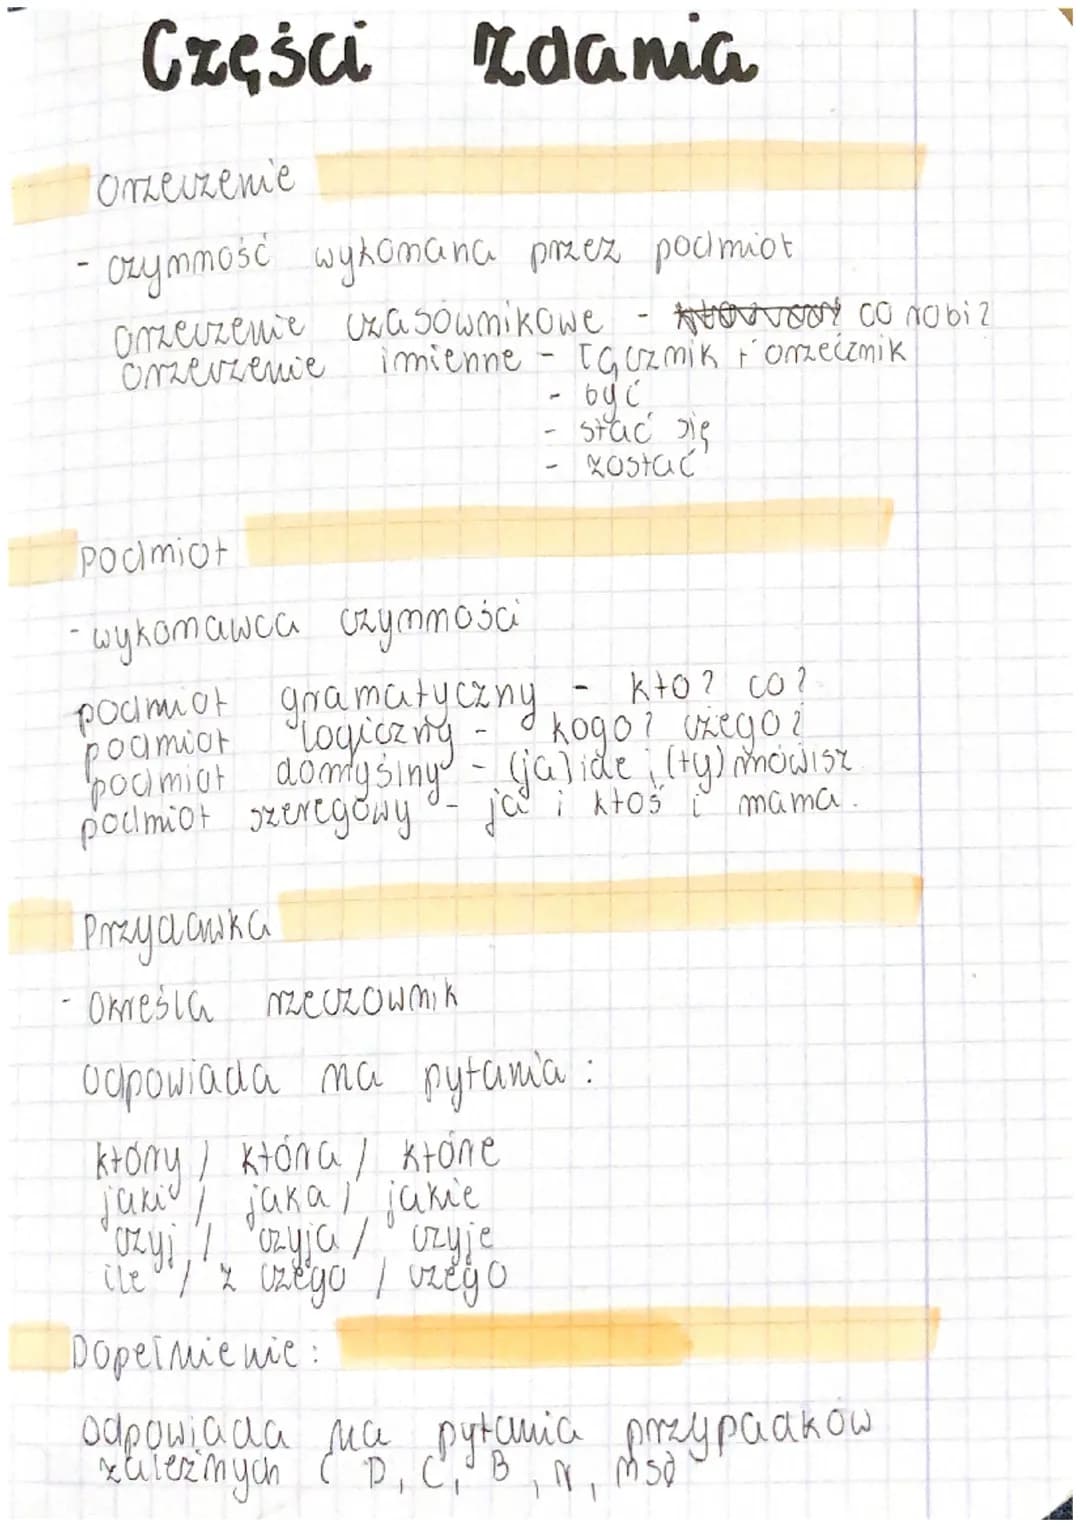 Części zdania
Orzeczenie
- czynność wykonana przez podmiot
orzeczenie czasownikowe - co robi?
orzeczenie imienne - łącznik + orzecznik
- być
- stać się
- zostać
Podmiot
- wykonawca czynności
podmiot gramatyczny - kto? co?
podmiot logiczny - kogo? czego?
podmiot domyślny - (ja) idę, (ty) mówisz
podmiot szeregowy - ja i ktoś i mama.
Przydawka
- Określa rzeczownik
odpowiada na pytania:
który / która / które
jaki / jaka / jakie
czyj / czyja / czyje
ile / z czego / czego
Dopełnienie:
odpowiada na pytania przypadków
zależnych ( D, C, B, N, Msc)